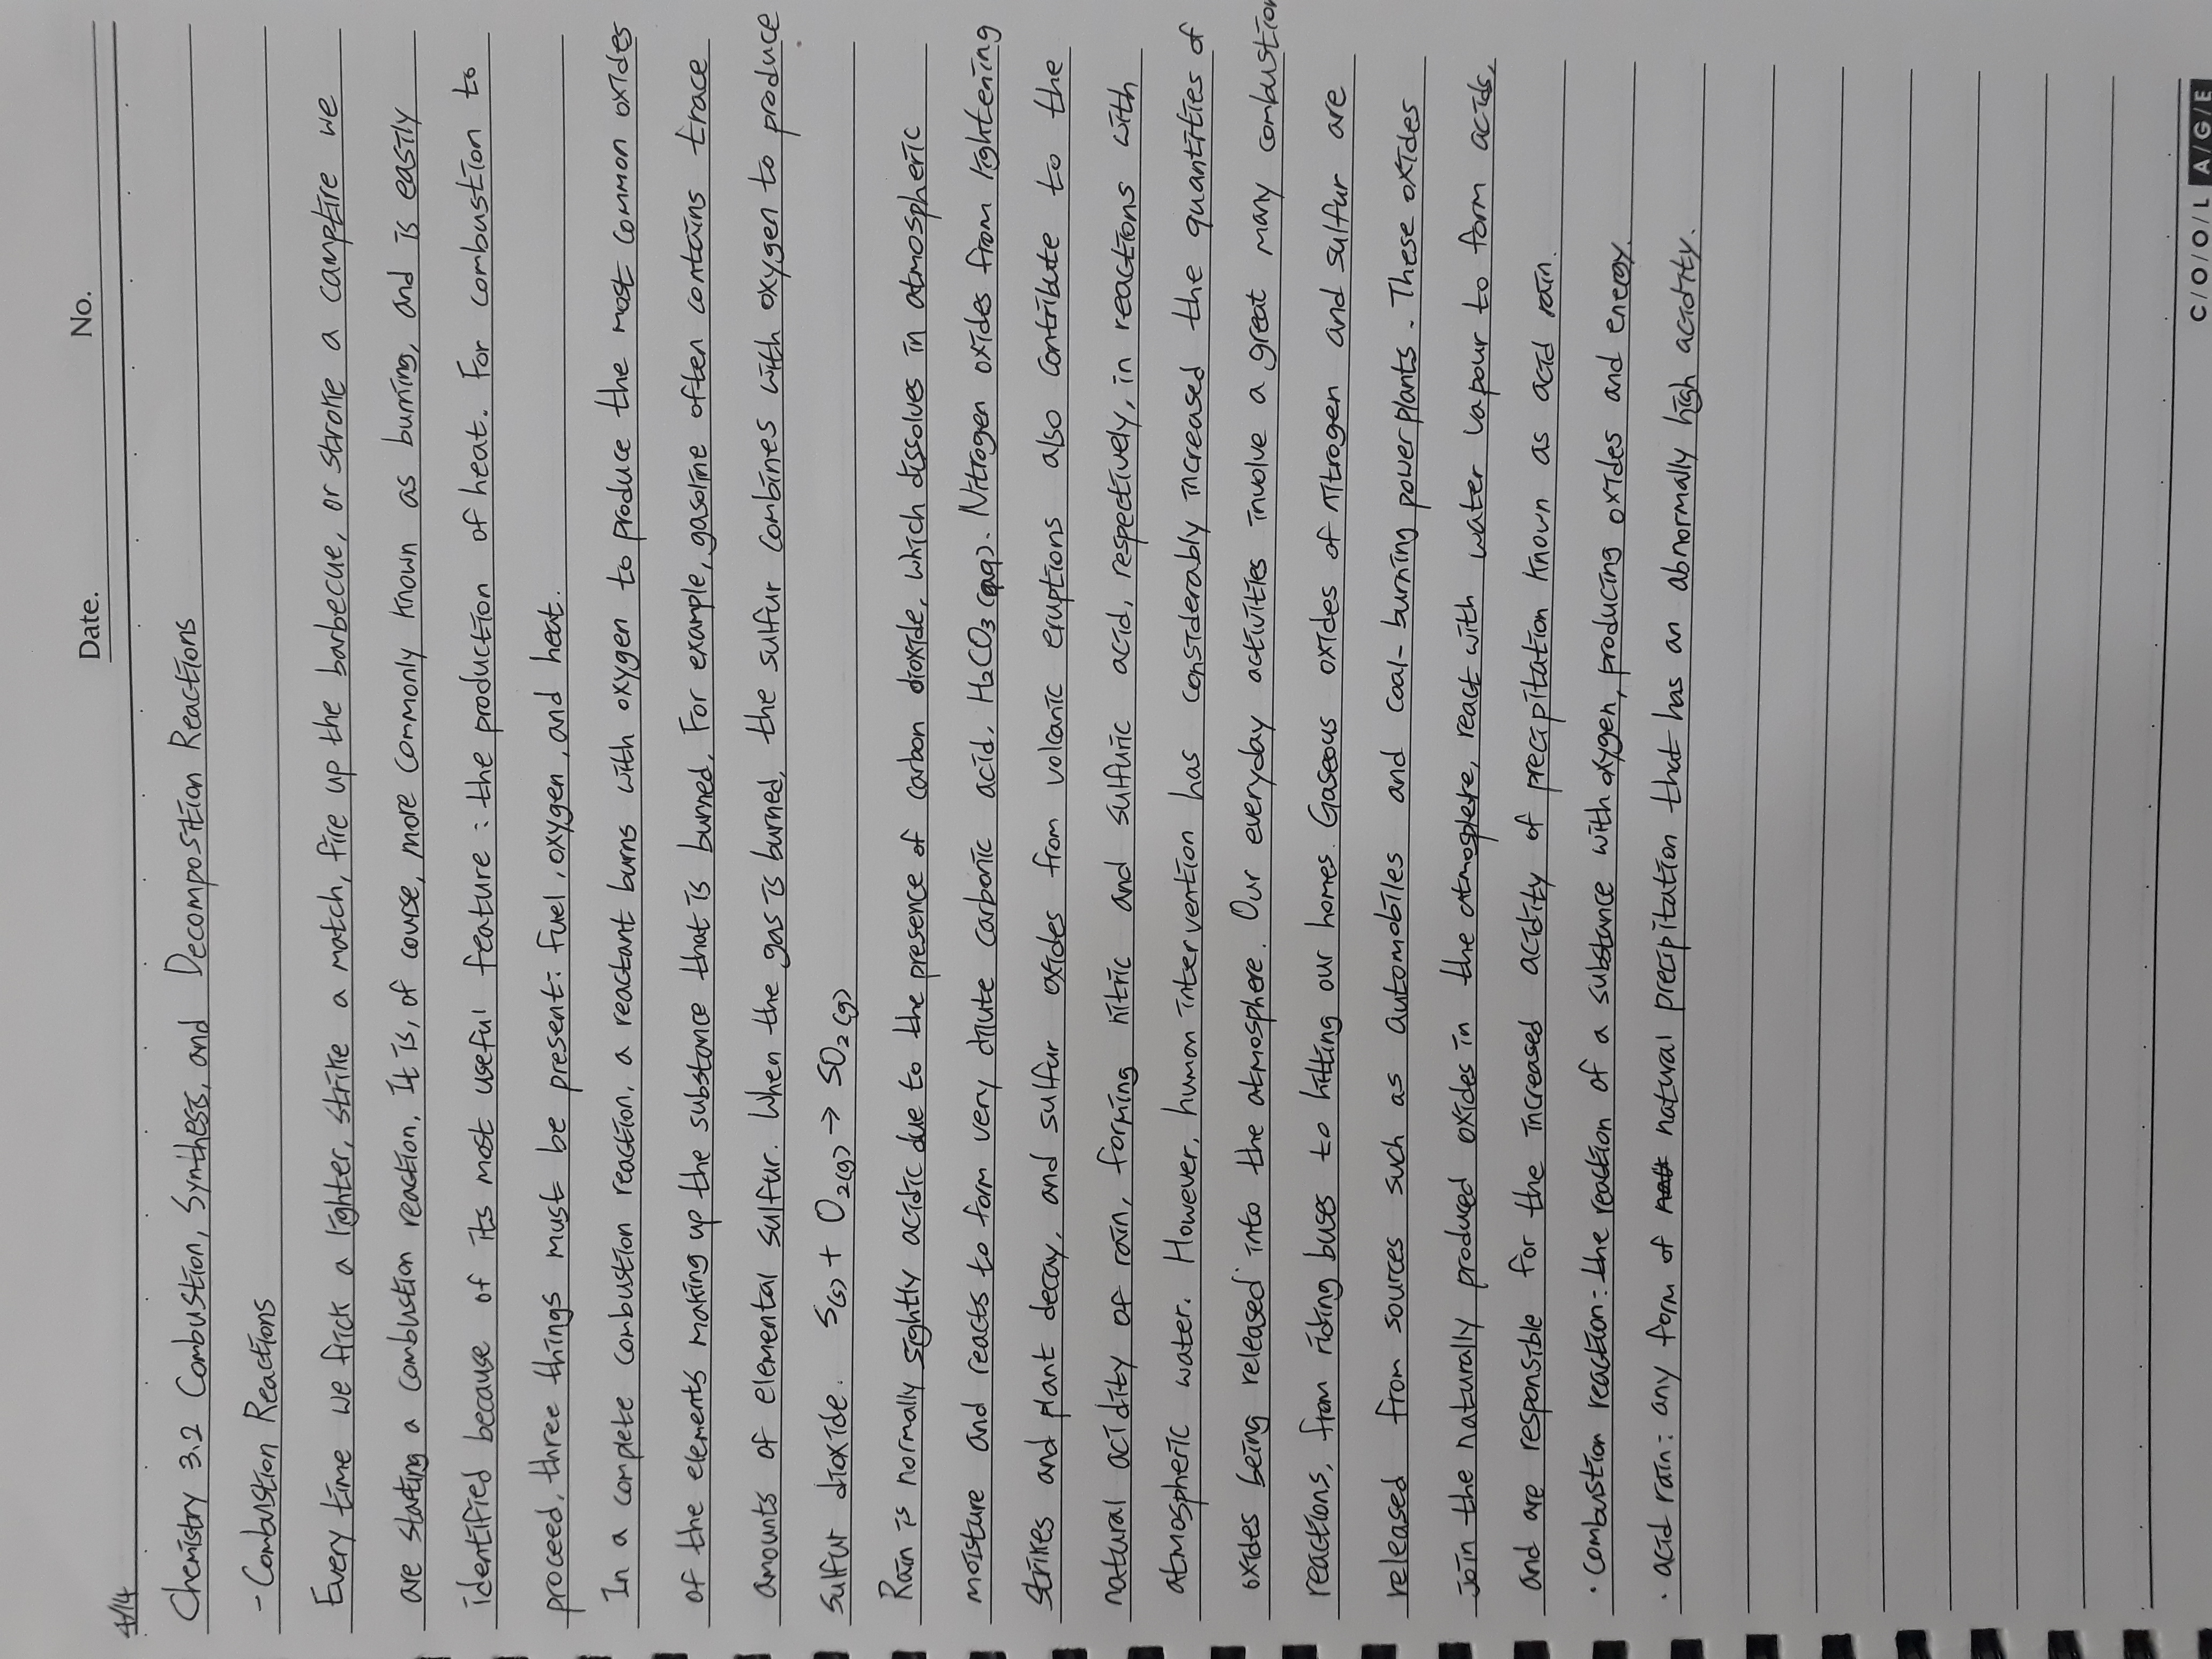 Date.
No.
4/14
Chemistry 3.2 Combustion, Synthesis, and Decomposition Reactions
- Combustion Reactions
Every time we flick a lighter, strike a match, fire up the barbecue, or stroke a campfire we
are starting a combustion reaction. It is, of course, more commonly known as burning, and is easily
identified because of its most useful feature : the production of heat. For combustion to
proceed, three things must be present: fuel, oxygen, and heat.
In a complete combustion reaction, a reactant burns with oxygen to produce the most common oxides
of the elements making up the substance that is burned. For example, gasoline often contains trace
amounts of elemental sulfur. When the gas is burned, the sulfur combines with oxygen to produce
sulfur dioxide. S(s) + O2(g) → SO2(g)
Rain is normally slightly acidic due to the presence of carbon dioxide, which dissolves in atmospheric
moisture and reacts to form very dilute carbonic acid, H2CO3 (aq). Nitrogen oxides from lightening
strikes and plant decay, and sulfur oxides from volcanic eruptions also contribute to the
natural acidity of rain, forming nitric and sulfuric acid, respectively, in reactions with
atmospheric water. However, human intervention has considerably increased the quantities of
oxides being released into the atmosphere. Our everyday activities involve a great many combustion
reactions, from riding buses to hitting our homes. Gaseous oxides of nitrogen and sulfur are
released from sources such as automobiles and coal-burning power plants. These oxides
join the naturally produced oxides in the atmosplere, react with water vapour to form acids,
and are responsible for the increased acidity of precipitation known as acid rain.
· Combustion reaction: the reaction of a substance with oxygen, producing oxides and energy.
· acid rain: any form of natural precipitation that has an abnormally high acidity.
C/O/O/L A/G/E